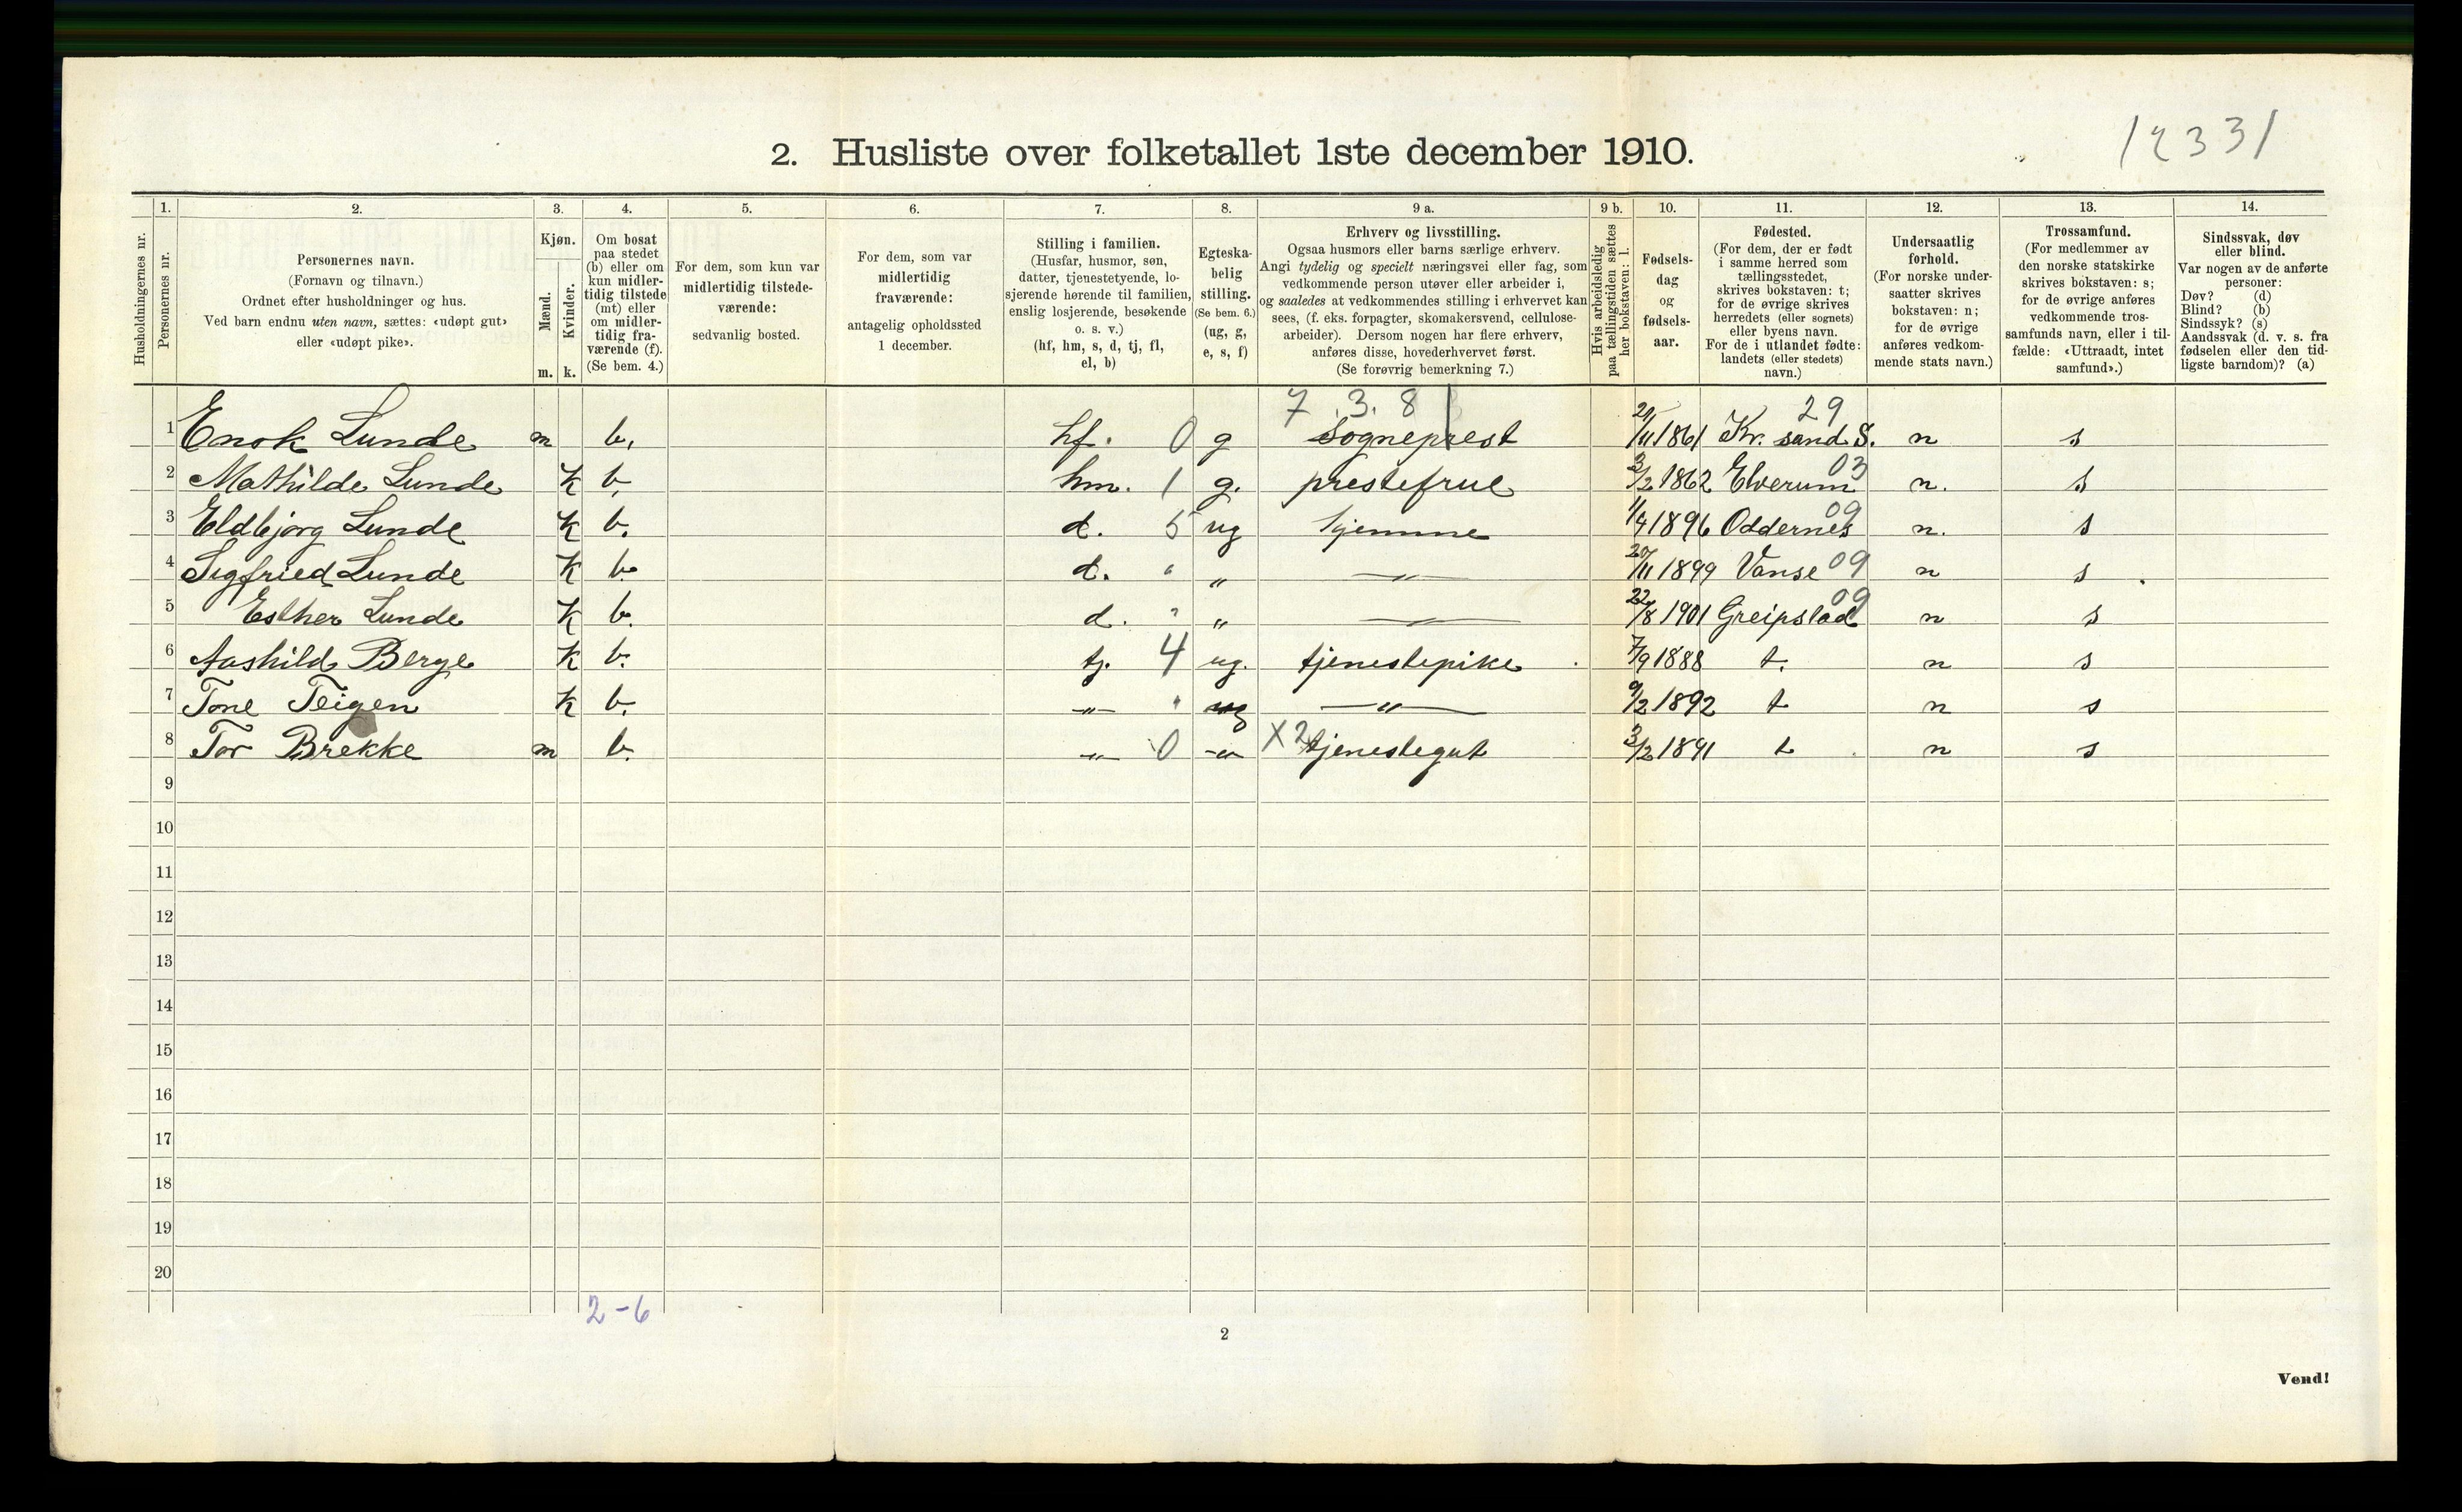 12331
2. Husliste over folketallet 1ste december 1910.
Husholdningernes nr.
1. Personernes nr.
2. Personernes navn. (Fornavn og tilnavn.) Ordnet efter husholdninger og hus. Ved barn endnu uten navn, sættes: «udøpt gut» eller «udøpt pike».
3. Kjøn. Mænd. m. Kvinder. k.
4. Om bosat paa stedet (b) eller om kun midlertidig tilstede (mt) eller om midlertidig fraværende (f). (Se bem. 4.)
5. For dem, som kun var midlertidig tilstedeværende: sedvanlig bosted.
6. For dem, som var midlertidig fraværende: antagelig opholdssted 1 december.
7. Stilling i familien. (Husfar, husmor, søn, datter, tjenestetyende, losjerende hørende til familien, enslig losjerende, besøkende o. s. v.) (hf, hm, s, d, tj, fl, el, b)
8. Egteskabelig stilling. (Se bem. 6.) (ug, g, e, s, f)
9 a. Erhverv og livsstilling. Ogsaa husmors eller barns særlige erhverv. Angi tydelig og specielt næringsvei eller fag, som vedkommende person utøver eller arbeider i, og saaledes at vedkommendes stilling i erhvervet kan sees, (f. eks. forpagter, skomakersvend, cellulosearbeider). Dersom nogen har flere erhverv, anføres disse, hovederhvervet først. (Se forøvrig bemerkning 7.)
9 b. Hvis arbeidsledig paa tællingstiden sættes her bokstaven: l.
10. Fødselsdag og fødselsaar.
11. Fødested. (For dem, der er født i samme herred som tællingsstedet, skrives bokstaven: t; for de øvrige skrives herredets (eller sognets) eller byens navn. For de i utlandet fødte: landets (eller stedets) navn.)
12. Undersaatlig forhold. (For norske undersaatter skrives bokstaven: n; for de øvrige anføres vedkommende stats navn.)
13. Trossamfund. (For medlemmer av den norske statskirke skrives bokstaven: s; for de øvrige anføres vedkommende trossamfunds navn, eller i tilfælde: «Uttraadt, intet samfund».)
14. Sindssvak, døv eller blind. Var nogen av de anførte personer: Døv? (d) Blind? (b) Sindssyk? (s) Aandssvak (d. v. s. fra fødselen eller den tidligste barndom)? (a)
7 .3. 8 29
1 Enok Lunde m b. hf. 0 g Sogneprest 21/11 1861 Kr.sand S. n s
2 Mathilde Lunde K b. hm. 1 g. prestefrue 3/2 1862 Elverum 03 n. s
3 Eldbjørg Lunde K b. d. 5 ug hjemme 1/4 1896 Oddernes 09 n. s
4 Sigfried Lunde K b. d. " " —"— 20/11 1899 Vanse 09 n s
5 Esther Lunde K b. d. " " —"— 22/8 1901 Greipstad 09 n s
6 Aashild Berge K b. tj. 4 ug. tjenestepike 7/9 1888 t. n s
7 Tone Teigen K b. —"— " ug —"— 9/2 1892 t n s
8 Tor Brekke m b. —"— 0 —"— X2 tjenestegut 3/2 1891 t n s
9
10
11
12
13
14
15
16
17
18
19
20
2-6
2
Vend!